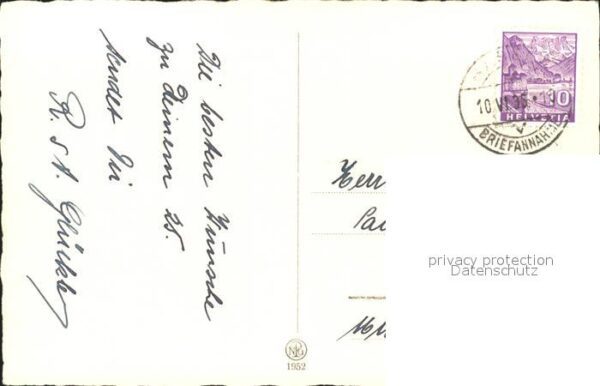 Die besten Wünsche
zu Deinem 25.
sendet Dir
R. & A. Glückler
10.VI.36
BRIEFANNAHME
10
HELVETIA
Herr
privacy protection
Datenschutz
1952